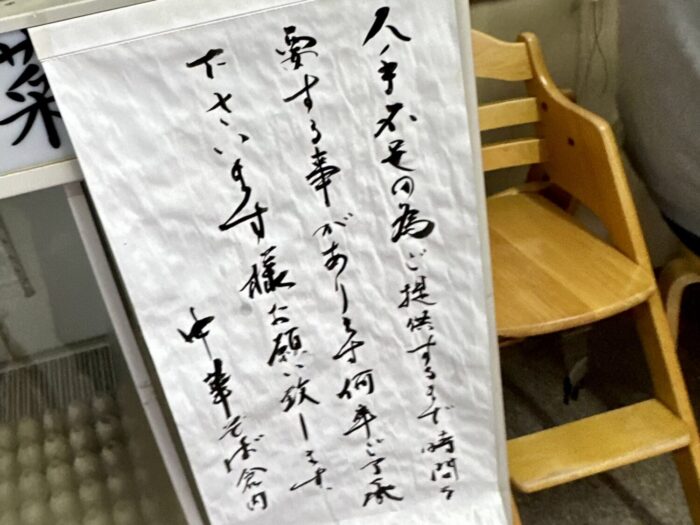 人手不足の為ご提供するまで時間を
要する事があります何卒ご了承
下さいます様お願い致します
中華そば倉内
菜